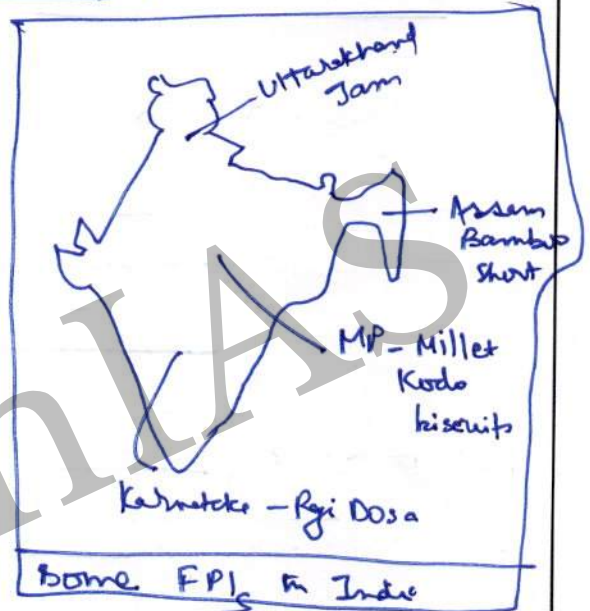 Uttarakhand
Jam
Assam
Bamboo
Shoot
MP - Millet
Kodo
biscuits
Karnataka - Ragi Dosa
Some FPIs in India